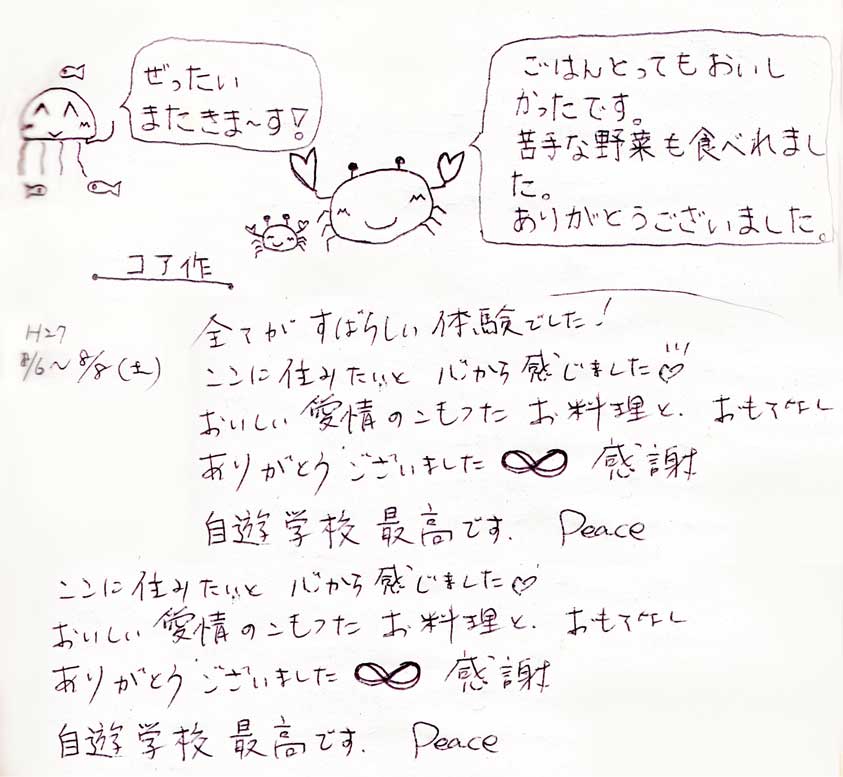 ぜったい
またきま〜す!
ごはんとってもおいし
かったです。
苦手な野菜も食べれまし
た。
ありがとうございました。
コア作
H27
8/6〜8/8(土)
全てがすばらしい体験でした!
ここに住みたいと 心から感じました♡
おいしい愛情のこもった お料理と、おもてなし
ありがとうございました ∞ 感謝
自遊学校 最高です. Peace
ここに住みたいと 心から感じました♡
おいしい愛情のこもった お料理と、おもてなし
ありがとうございました ∞ 感謝
自遊学校 最高です. Peace